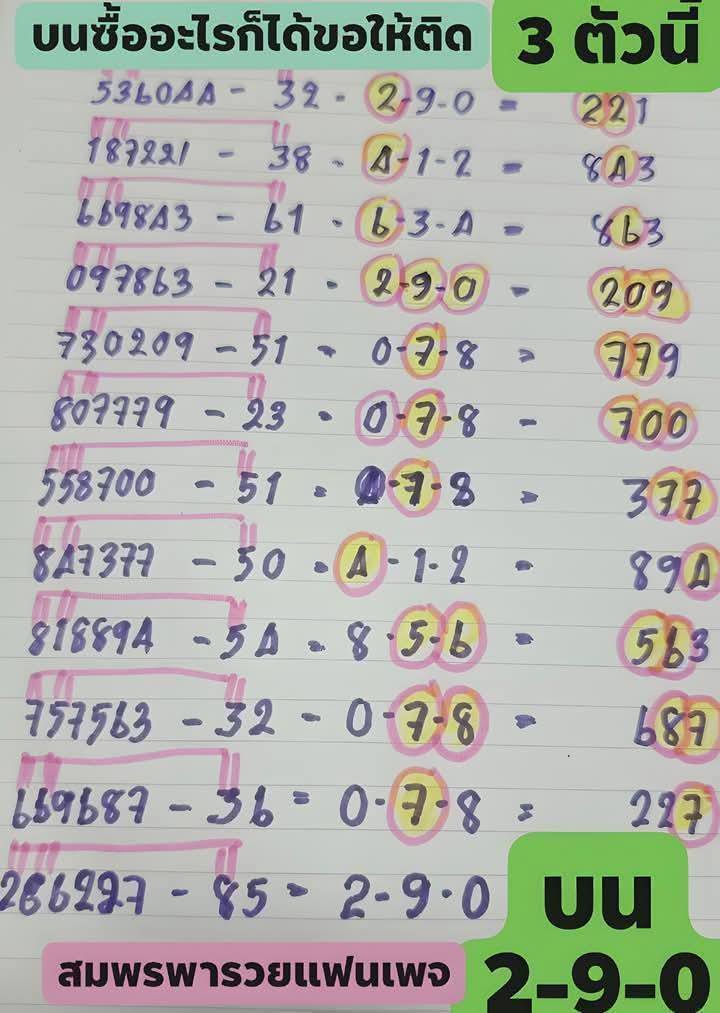 บนซื้ออะไรก็ได้ขอให้ติด
3 ตัวนี้
536044 - 32 - 2-9-0 = 221
187221 - 38 - 4-1-2 = 843
669843 - 61 - 6-3-4 = 863
097863 - 21 - 2-9-0 - 209
730209 - 51 - 0-7-8 = 779
807779 - 23 - 0-7-8 - 700
558700 - 51 = 0-7-8 = 377
847377 - 50 - 4-1-2 - 894
818894 - 54 - 8-5-6 = 563
757563 - 32 - 0-7-8 = 687
669687 - 36 = 0-7-8 = 227
266227 - 85 - 2-9-0
บน
2-9-0
สมพรพารวยแฟนเพจ